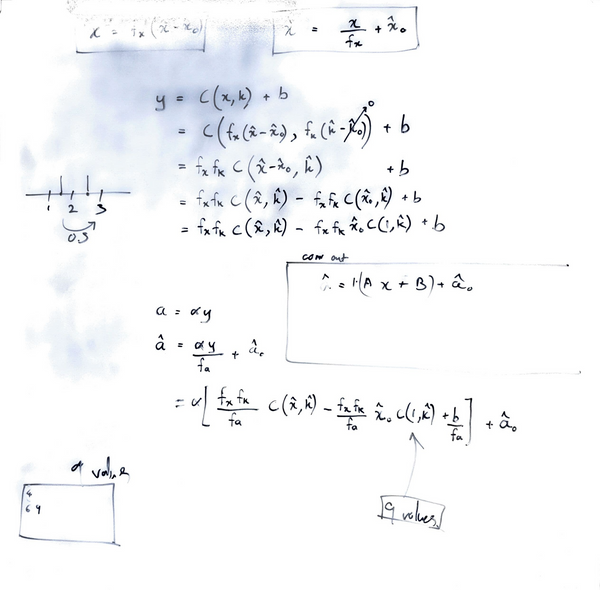 x = fx(x̂ - x̂₀)
x̂ = x/fx + x̂₀
y = C(x,k) + b
= C(fx(x̂-x̂₀), fk(k̂-k̂₀)) + b
0
= fx fk C(x̂-x̂₀, k̂) + b
= fx fk C(x̂,k̂) - fx fk C(x̂₀,k̂) + b
1 2 3
= fx fk C(x̂,k̂) - fx fk x̂₀ C(1,k̂) + b
0.5
conv out
= 1·(A x + B) + â₀
a = αy
â = αy/fa + â₀
= α[fx fk/fa C(x̂,k̂) - fx fk/fa x̂₀ C(1,k̂) + b/fa] + â₀
values
9 values